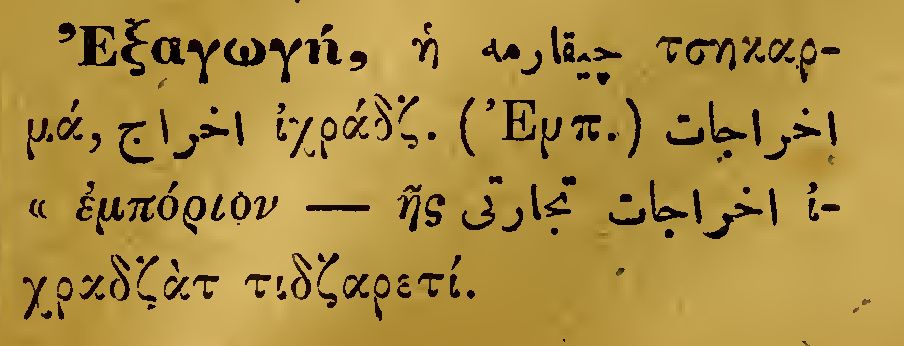 Ἐξαγωγή, ἡ چيقارمه τσηκαρ-
μά, اخراج ἰχράδζ. (Ἐμπ.) اخراجات
« ἐμπόριον — ῆς اخراجات تجارتى ἰ-
χραδζὰτ τιδζαρετί.